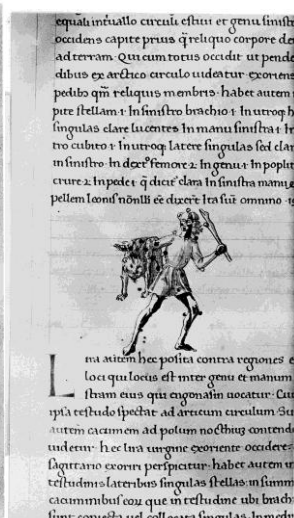 equali interuallo circuli estiui et genu sinistr
occidens capite prius q̄ reliquo corpore de
ad terram. Qui cum totus occidit ut pende
dibus ex arctico circulo uideatur. exoriens
pedibꝰ qm̄ reliquis membris. habet autem i
pite stellam .1. In sinistro brachio .1. In utroq h
singulas clare lucentes In manu sinistra .1. In
tro cubito .1. In utroq latere singulas sed clar
in sinistro. In dext̄o femore .2. In genu .1. In poplit
crure .2. In pede .1. q̄ dicit̄ clara In sinistra manu
pellem leonis nōnlli eē dixerēt Ita sūt omnino .1
Lira autem hec posita contra regiones e
loci qui locus est inter genu et manum
stram eius qui engonasin uocatur. Cui
ipsa testudo spectat ad arcticum circulum. Su
autem cacumen ad polum nothius contende
uidetur. hec lira uirgine exoriente occidere
sagittario exoriri perspicitur. habet autem in
testudinis lateribus singulas stellas. in summ
cacuminibus eoꝝ que in testudine ubi brach
sunt